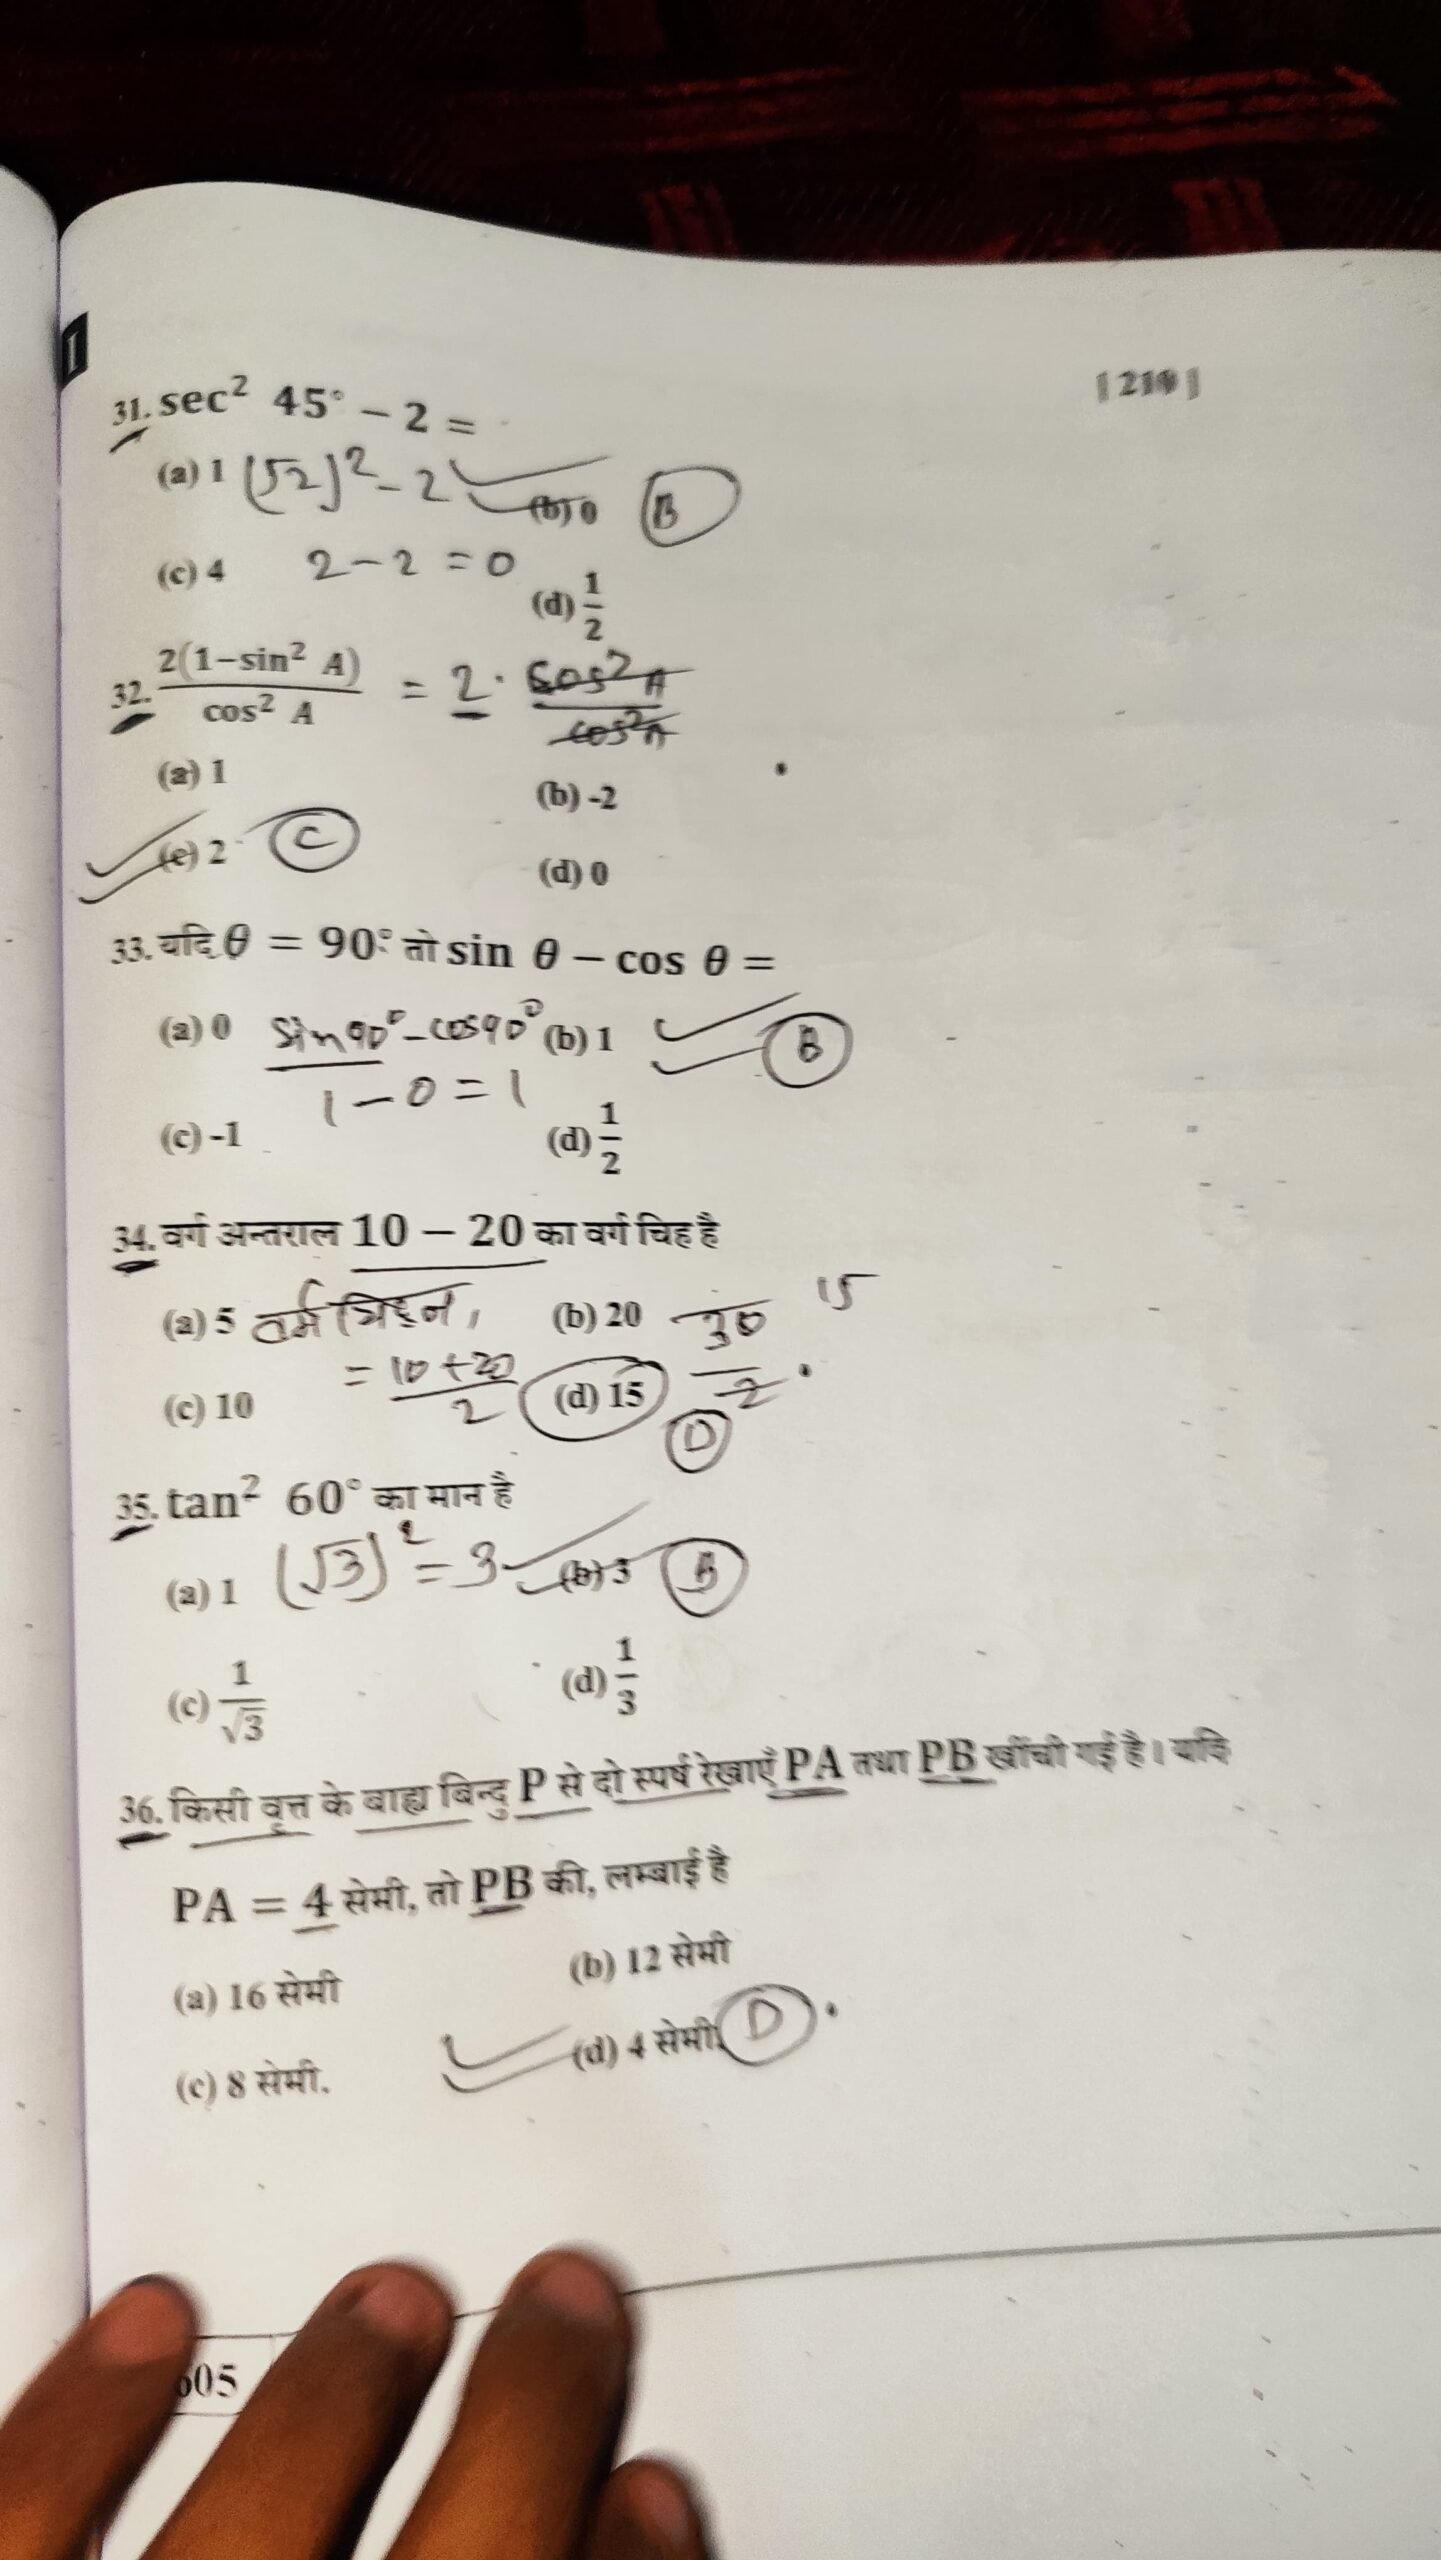 | 210 |
31. sec² 45° – 2 =
(a) 1 (√2)² – 2 (b) 0 B
(c) 4 2 – 2 = 0 (d) 1/2
32. 2(1–sin² A)/cos² A = 2 · cos²A/cos²A
(a) 1 (b) -2
(c) 2 C (d) 0
33. यदि θ = 90° तो sin θ – cos θ =
(a) 0 sin90° – cos90° (b) 1 B
1 – 0 = 1
(c) -1 (d) 1/2
34. वर्ग अन्तराल 10 – 20 का वर्ग चिह है
(a) 5 वर्ग चिह्न, (b) 20 30/2 15
(c) 10 = 10+20/2 (d) 15 D
35. tan² 60° का मान है
(a) 1 (√3)² = 3 (b) 3 B
(c) 1/√3 (d) 1/3
36. किसी वृत्त के बाह्य बिन्दु P से दो स्पर्ष रेखाएँ PA तथा PB खींची गई है। यदि
PA = 4 सेमी, तो PB की, लम्बाई है
(a) 16 सेमी (b) 12 सेमी
(c) 8 सेमी. (d) 4 सेमी. D
605